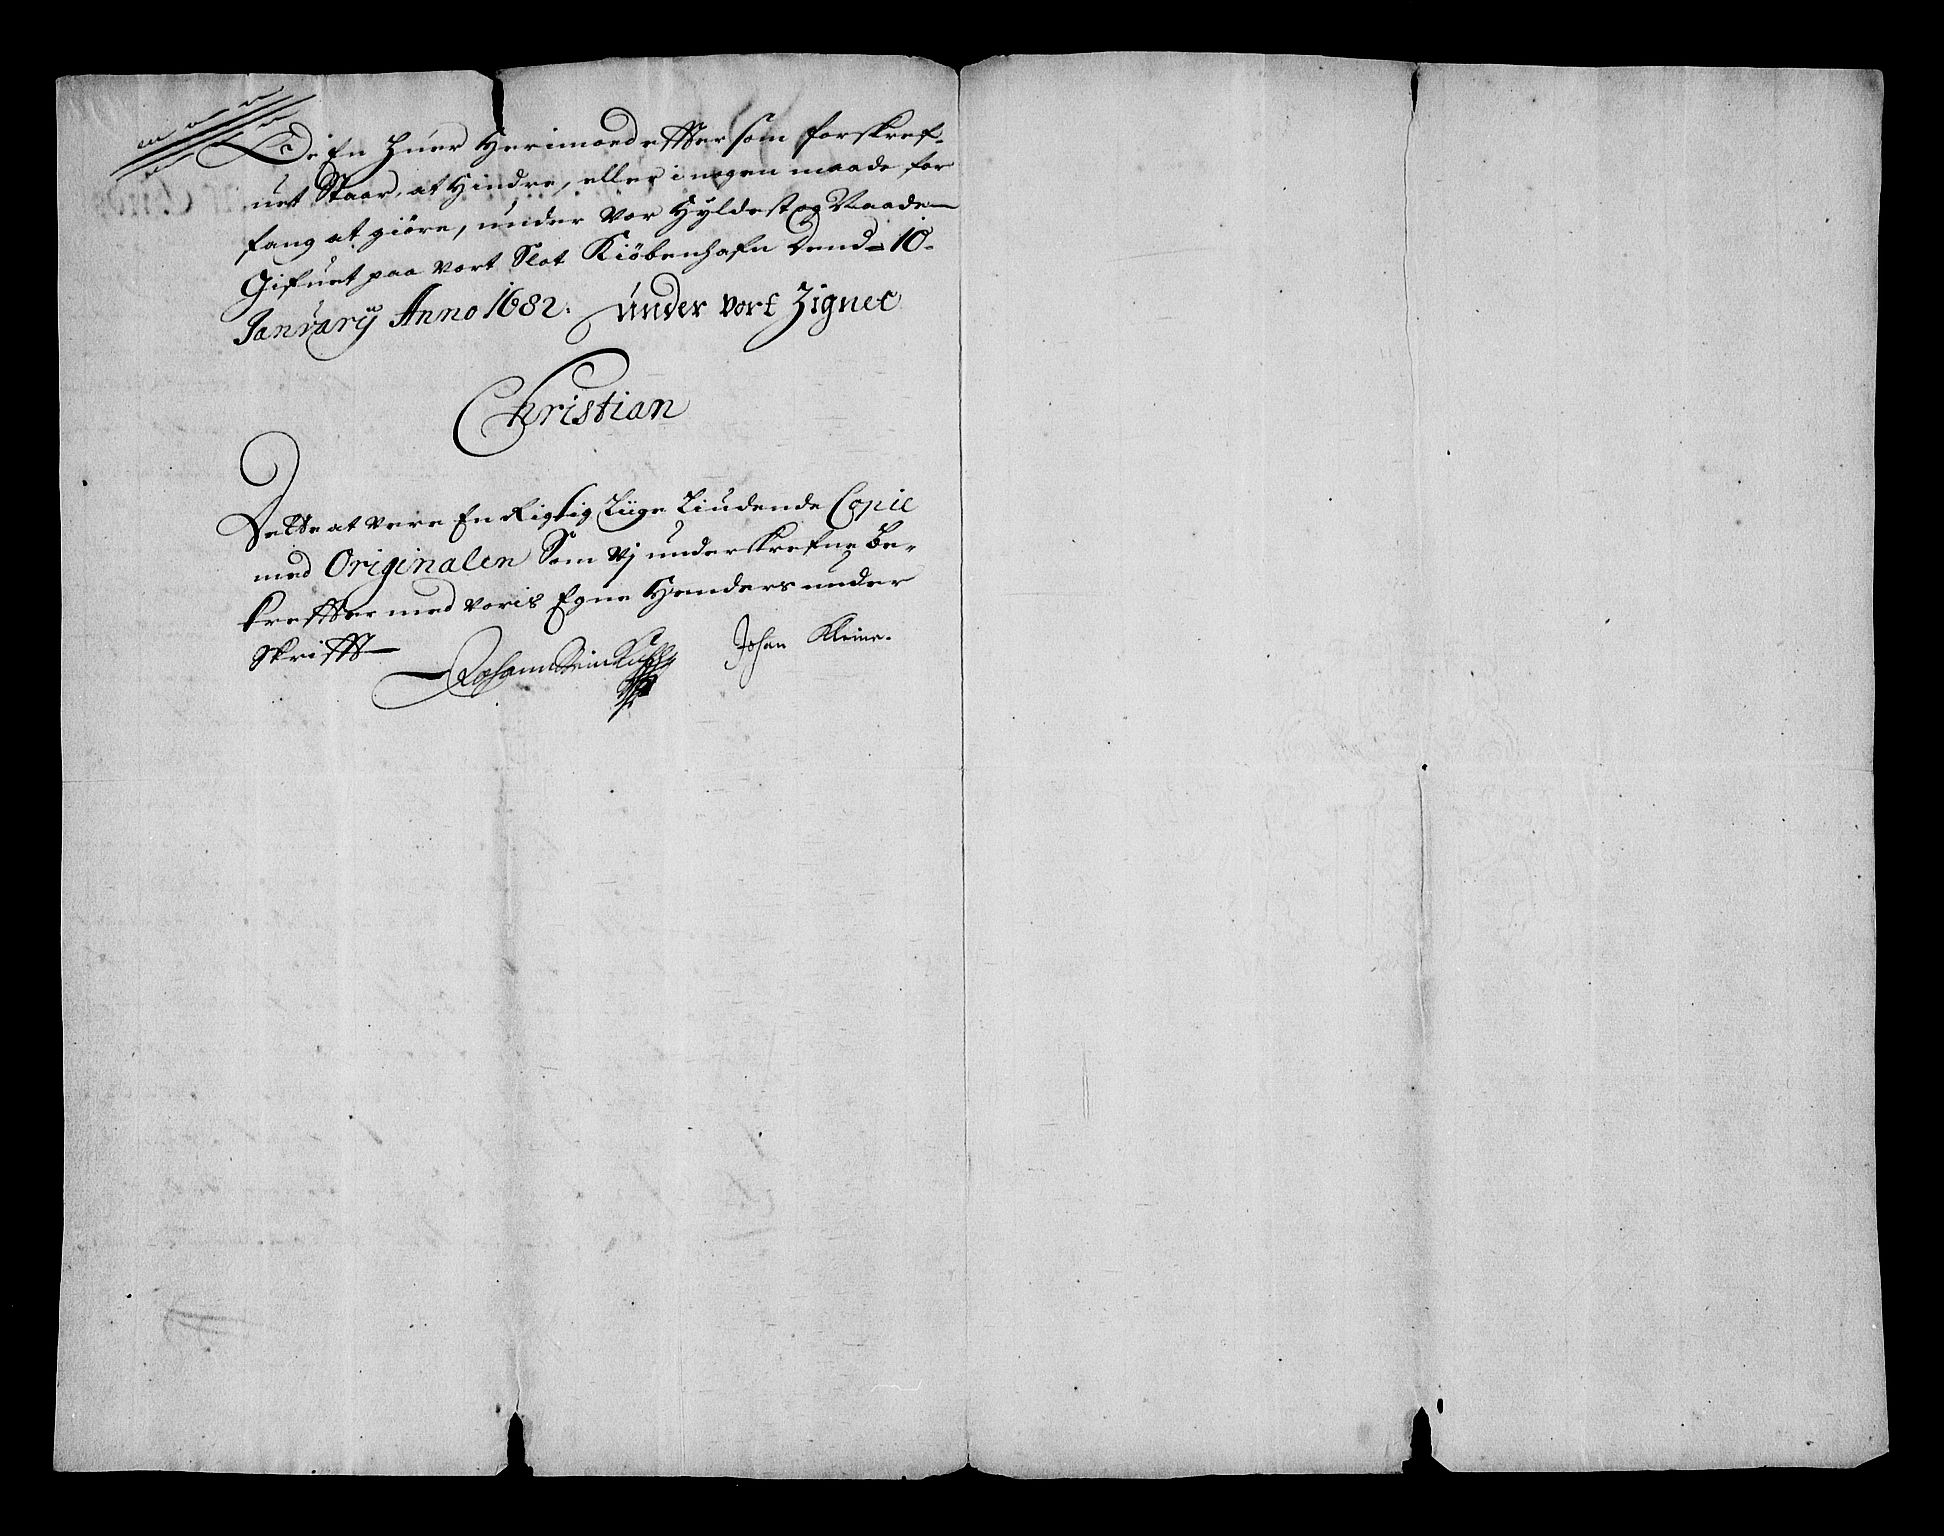 De En huer Herimoed efter som forskref-
net Staar, at Hindre, eller i nogen maade for
fang at giöre, under Vor Hÿldest og Naade
Gifuet paa vort Slot Kiöbenhafn Dend 10.
Januarÿ Anno 1682. Under vort Zignet
Christian
Dette at vere En Rigtig Liige Liudende Copie
med Originalen Som Vj underskrefne be-
krefter med voris Egne Henders under
Skrift
Johan Kleine.